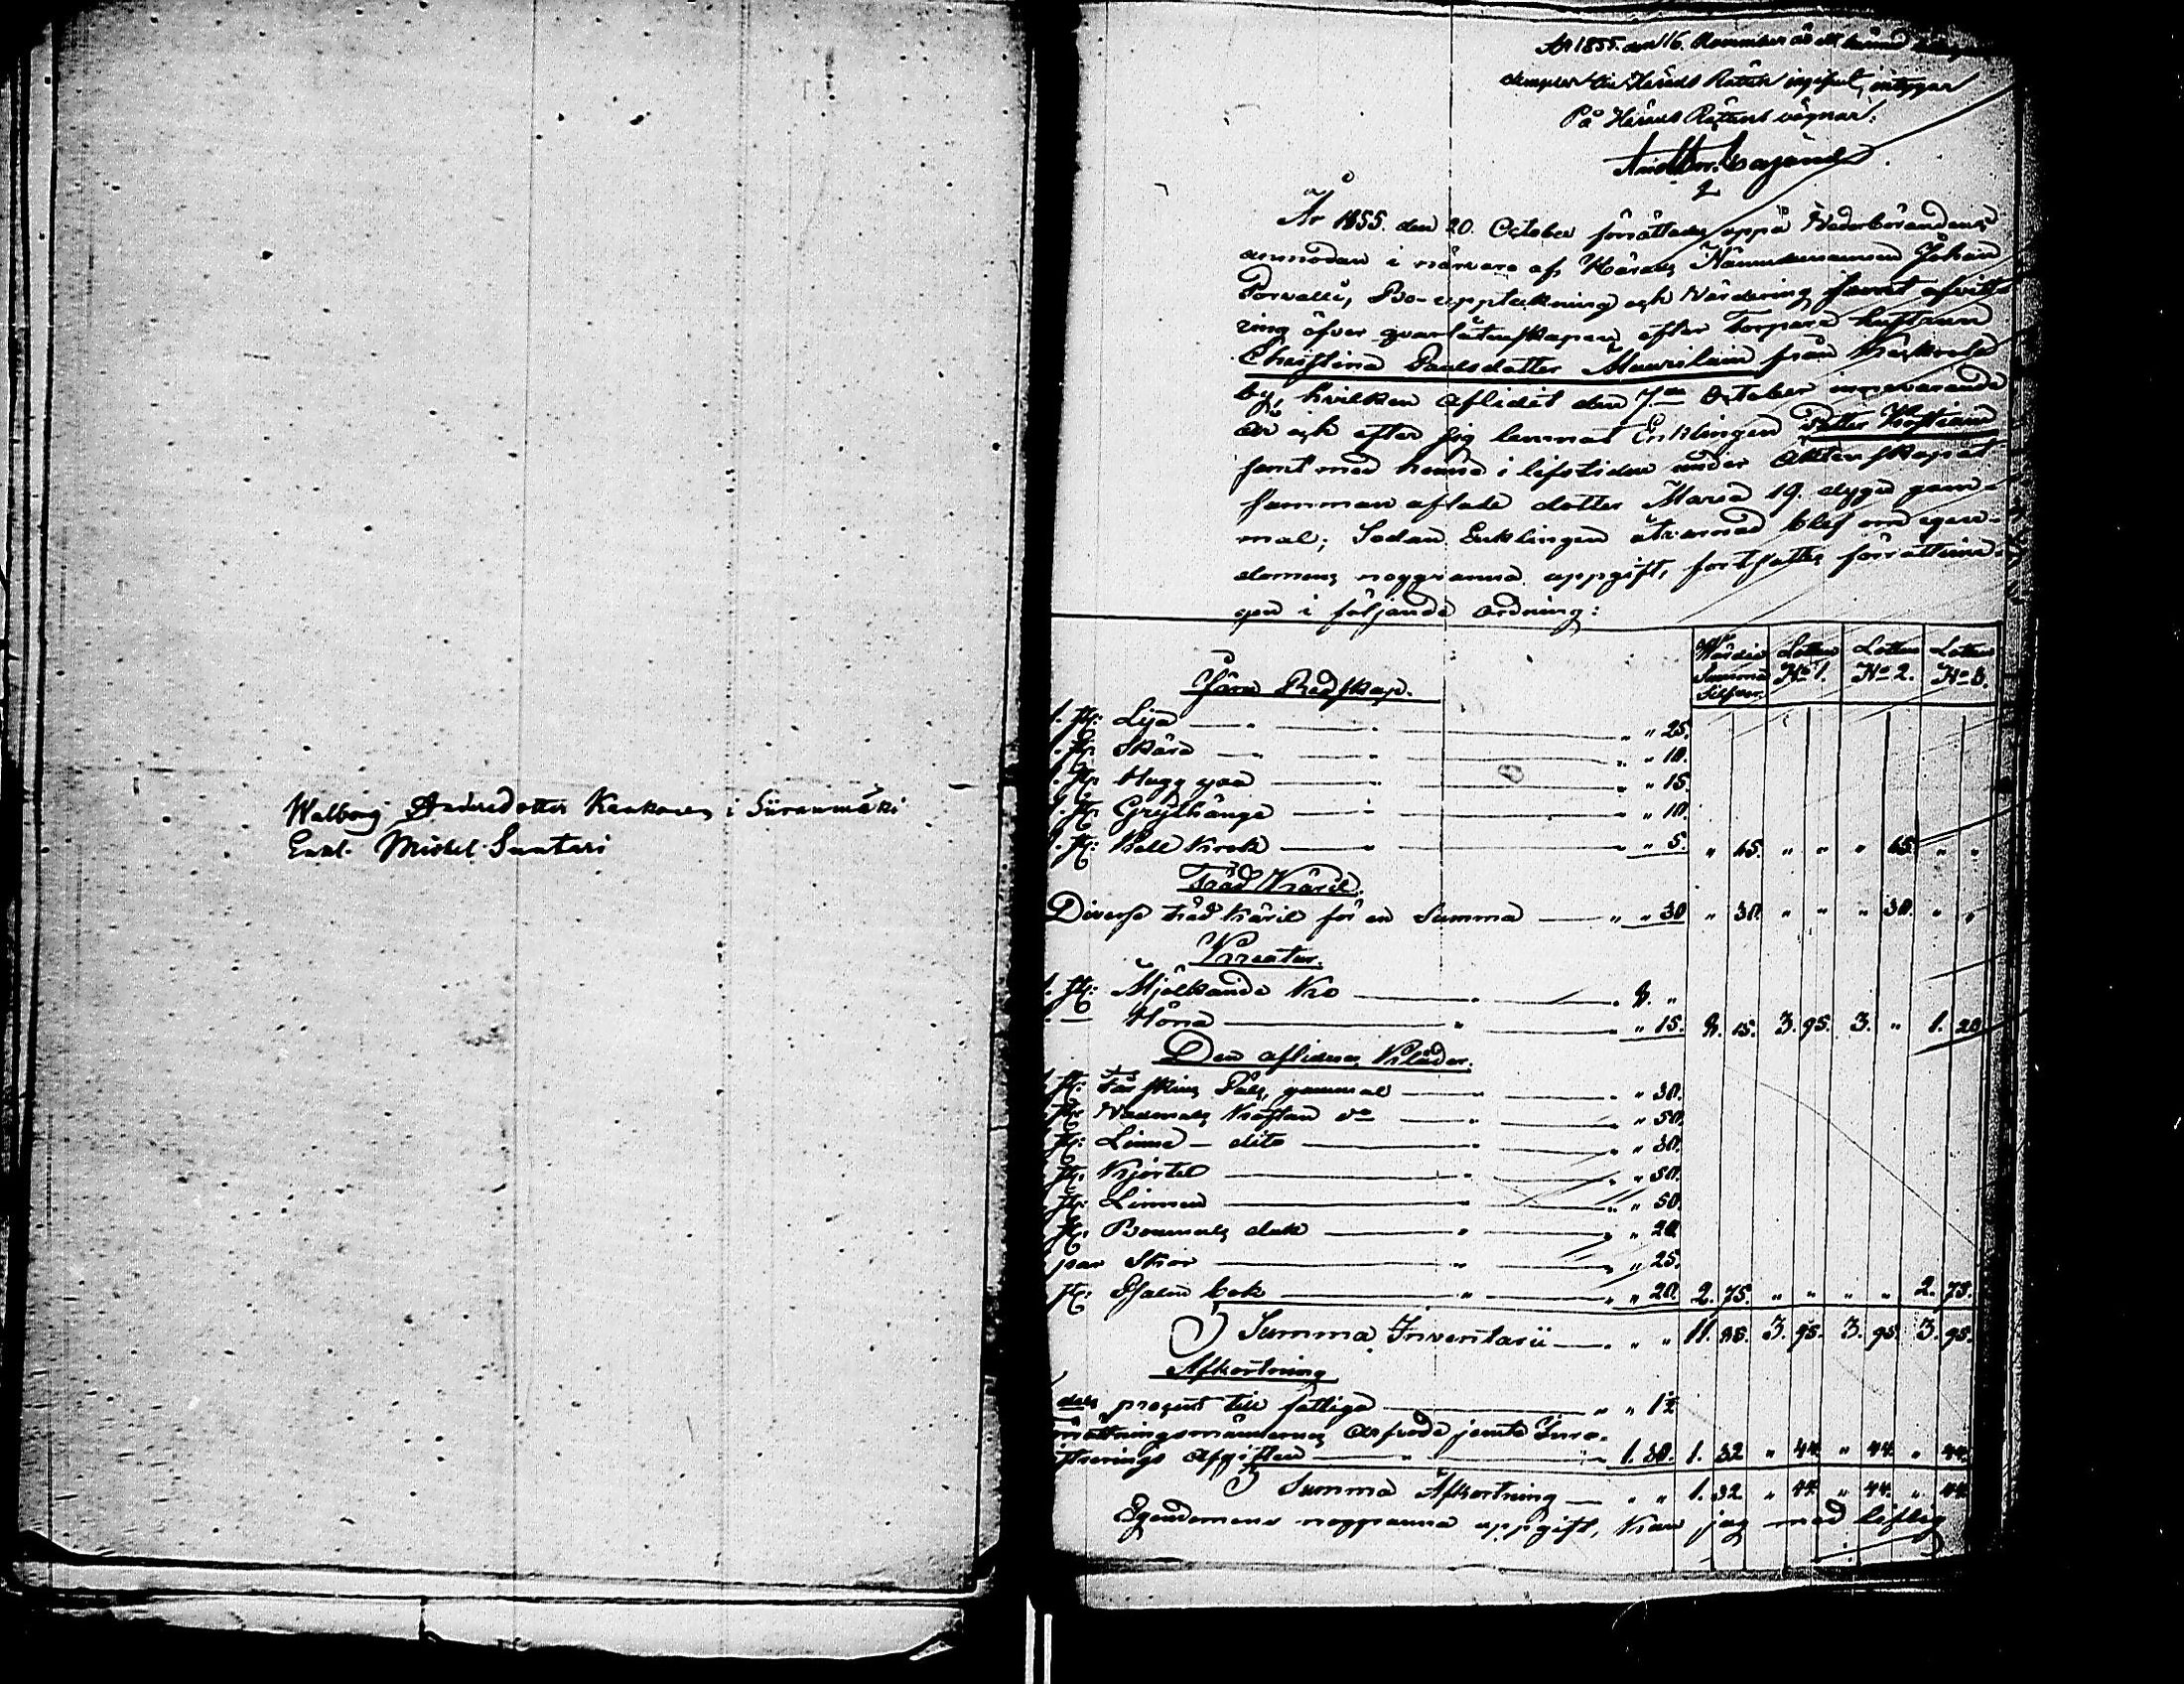 Walborg Andersdotter Kaakonen i Siiranmäki
Enkl. Michel Suntari
År 1855. den 16. November är ett
exemplar till Härads Rätten ingifvet, intygar
På Härads Rättens vägnar:
År 1855. den 20. October förrättades uppå Wederbörandens
anmodan i närvaro af Härads Nämndemannen Johan
Porvalli, Bo-uppteckning och Värdering samt afvittr
ing öfver qvarlåtenskapen efter Torpare hustrun
Christina Paulsdotter Muurilain från
by, hvilken aflidit den 7de October innevarande
år och efter sig lemnat Enklingen Petter
samt med henne i lifstiden under Äktenskapet
samman aflade dotter Maria 19. dygn gam-
mal; Sedan Enklingen åtvarnad blef om egen-
domens noggranna uppgift, fortsattes förrättnin-
gen i följande ordning:
Värdie Summa Silfver. Lotten No 1. Lotten No 2. Lotten No 3.
Järn Redskap.
1. st: Lija — " " 25.
1. st: Skära — " " 10.
1. st: Hugg yxa — " " 15.
1. st: Grythänge — " " 10.
1. st: Krok — " " 5. " 65. " " " 65. " "
Träd Käril.
Diverse träd käril för en Summa — " " 30 " 30. " " " 30. " "
Kreatur.
1. st: Mjölkande Ko — 8. "
Höna — " 15. 8. 15. 3. 95. 3. " 1. 20.
Den aflidnes Kläder.
st: Får skins Päls, gammal — " 30.
st: Wadmals Kaftan do — " 50.
st: Linne — dito — " 30.
st: Kjortel — " 50.
st: Linnen — " 50.
st: Bomuls duk — " 20
par Skor — " 25.
st: Psalm bok — " 20. 2. 75. " " " " 2. 75.
Summa Inventarii — " " 11. 85. 3. 95. 3. 95. 3. 95.
Afkortning
dels procent till fattige — " " 1½
rättningsmännernes arfvode jemte
strerings Afgiften — 1. 30. 1. 32 " 44. " 44. " 44.
Summa Afkortning — " " 1. 32 " 44. " 44. " 44
Egendomens noggranna uppgift, kan jag med liflig